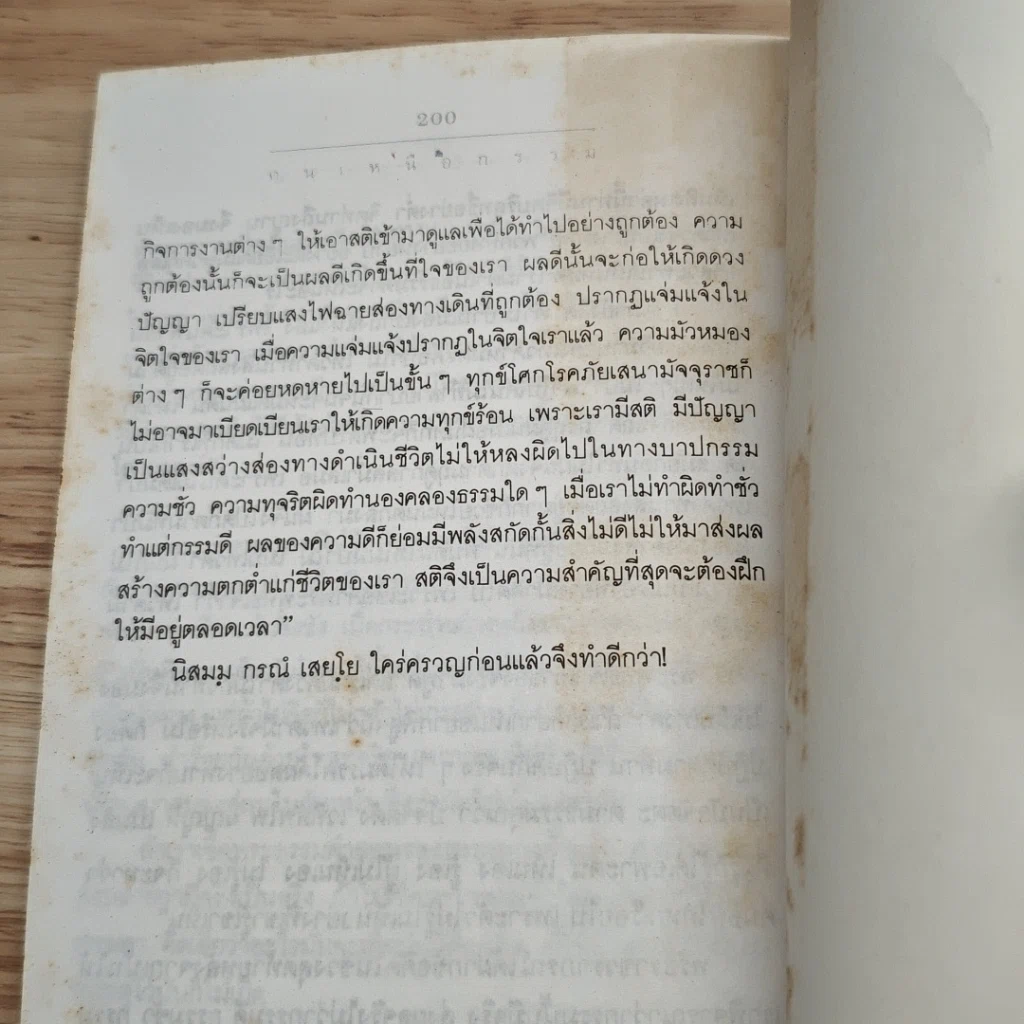 200
กิจการงานต่าง ๆ ให้เอาสติเข้ามาดูแลเพื่อได้ทำไปอย่างถูกต้อง ความ
ถูกต้องนั้นก็จะเป็นผลดีเกิดขึ้นที่ใจของเรา ผลดีนั้นจะก่อให้เกิดดวง
ปัญญา เปรียบแสงไฟฉายส่องทางเดินที่ถูกต้อง ปรากฏแจ่มแจ้งใน
จิตใจของเรา เมื่อความแจ่มแจ้งปรากฏในจิตใจเราแล้ว ความมัวหมอง
ต่าง ๆ ก็จะค่อยหดหายไปเป็นขั้น ๆ ทุกข์โศกโรคภัยเสนามัจจุราชก็
ไม่อาจมาเบียดเบียนเราให้เกิดความทุกข์ร้อน เพราะเรามีสติ มีปัญญา
เป็นแสงสว่างส่องทางดำเนินชีวิตไม่ให้หลงผิดไปในทางบาปกรรม
ความชั่ว ความทุจริตผิดทำนองคลองธรรมใด ๆ เมื่อเราไม่ทำผิดทำชั่ว
ทำแต่กรรมดี ผลของความดีก็ย่อมมีพลังสกัดกั้นสิ่งไม่ดีไม่ให้มาส่งผล
สร้างความตกต่ำแก่ชีวิตของเรา สติจึงเป็นความสำคัญที่สุดจะต้องฝึก
ให้มีอยู่ตลอดเวลา”
นิสมฺม กรณํ เสยฺโย ใคร่ครวญก่อนแล้วจึงทำดีกว่า!